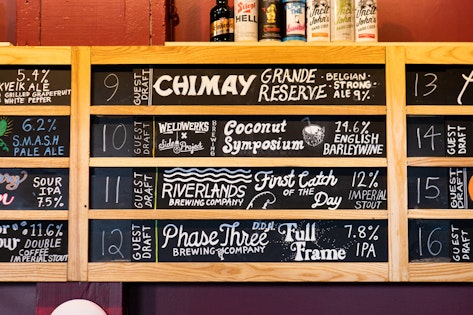 CHIMAY
Stiegl
HELL
UNCLE John's
UNCLE John's
5.4%
KVEIK ALE
GRILLED GRAPEFRUIT
WHITE PEPPER
6.2%
S.M.A.S.H
PALE ALE
SOUR
IPA
7.5%
11.6%
DOUBLE
COFFEE
IMPERIAL STOUT
9 GUEST DRAFT CHIMAY GRANDE RESERVE - BELGIAN - STRONG ALE 9%
10 GUEST DRAFT WELDWERKS X Side Project BREWING Coconut Symposium 14.6% ENGLISH BARLEYWINE
11 GUEST DRAFT RIVERLANDS BREWING COMPANY First Catch OF THE Day 12% IMPERIAL STOUT
12 GUEST DRAFT Phase Three BREWING COMPANY D.D.H. Full Frame 7.8% IPA
13 GUEST DRAFT
14 GUEST DRAFT
15 GUEST DRAFT
16 GUEST DRAFT